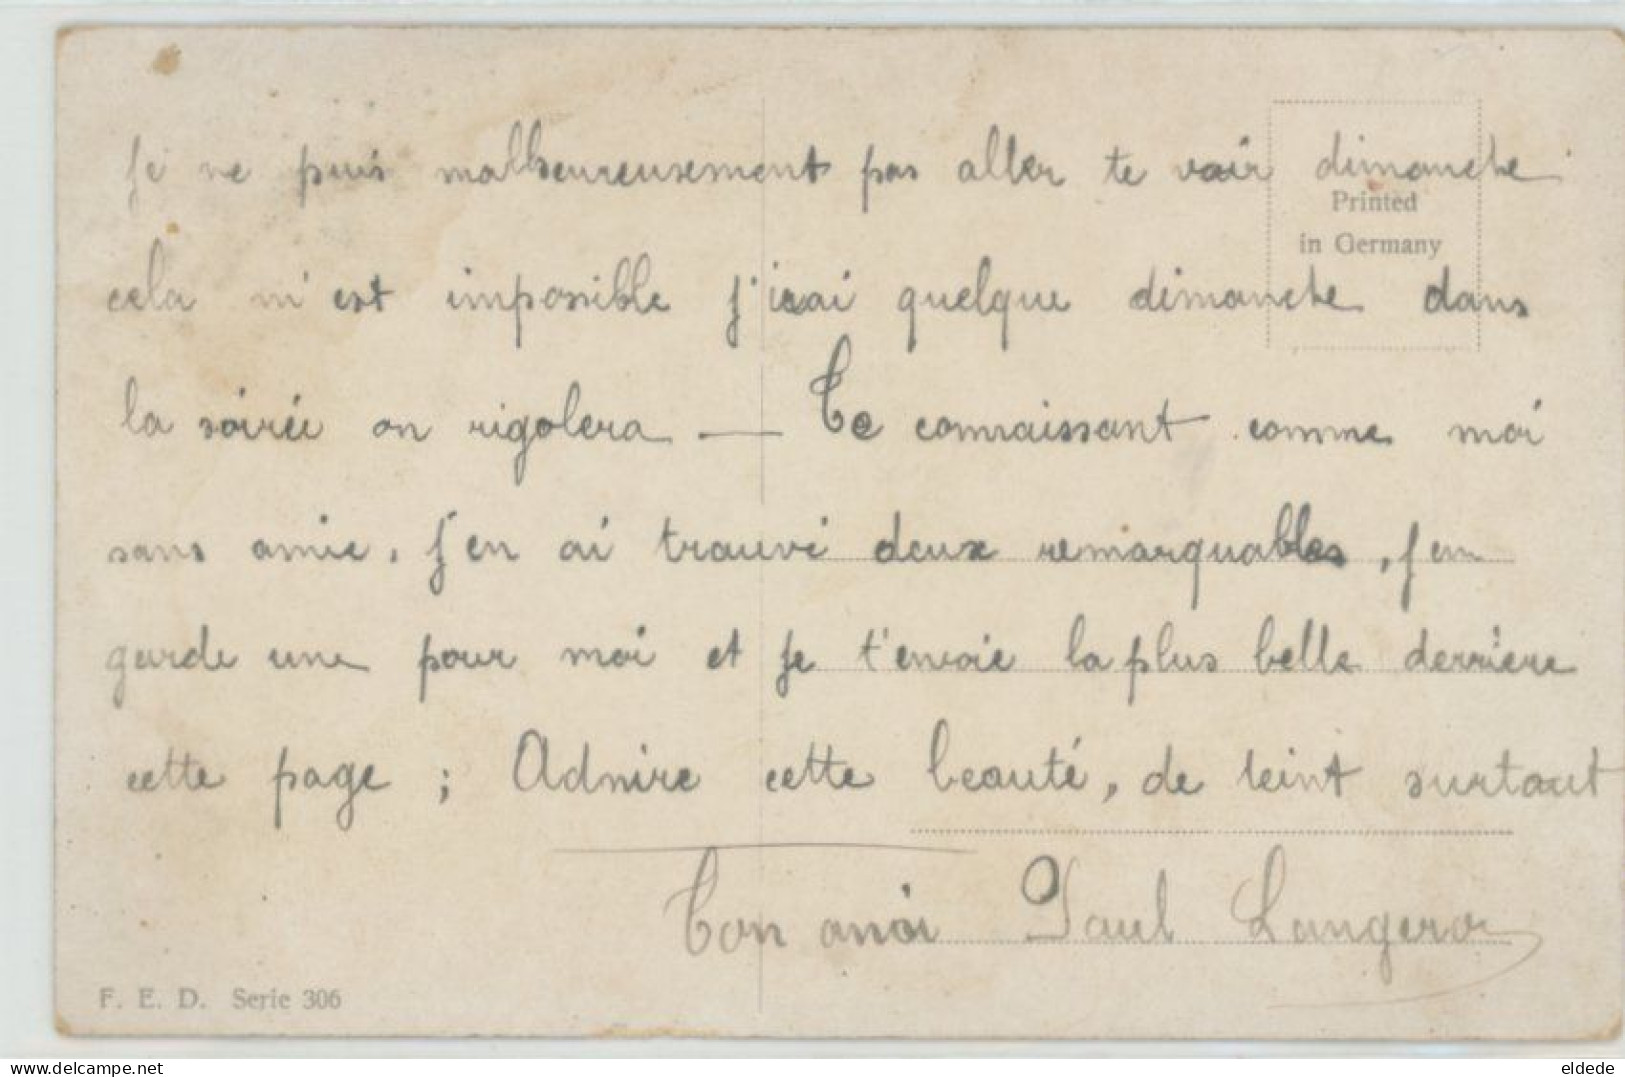 Je ne puis malheureusement pas aller te voir dimanche
Printed
in Germany
cela m'est impossible j'irai quelque dimanche dans
la soirée on rigolera — Te connaissant comme moi
sans amie, j'en ai trouvé deux remarquables, j'en
garde une pour moi et je t'envoie la plus belle derrière
cette page ; Admire cette beauté, de teint surtout
Ton ami Paul
F. E. D. Serie 306
www.delcampe.net
eldede